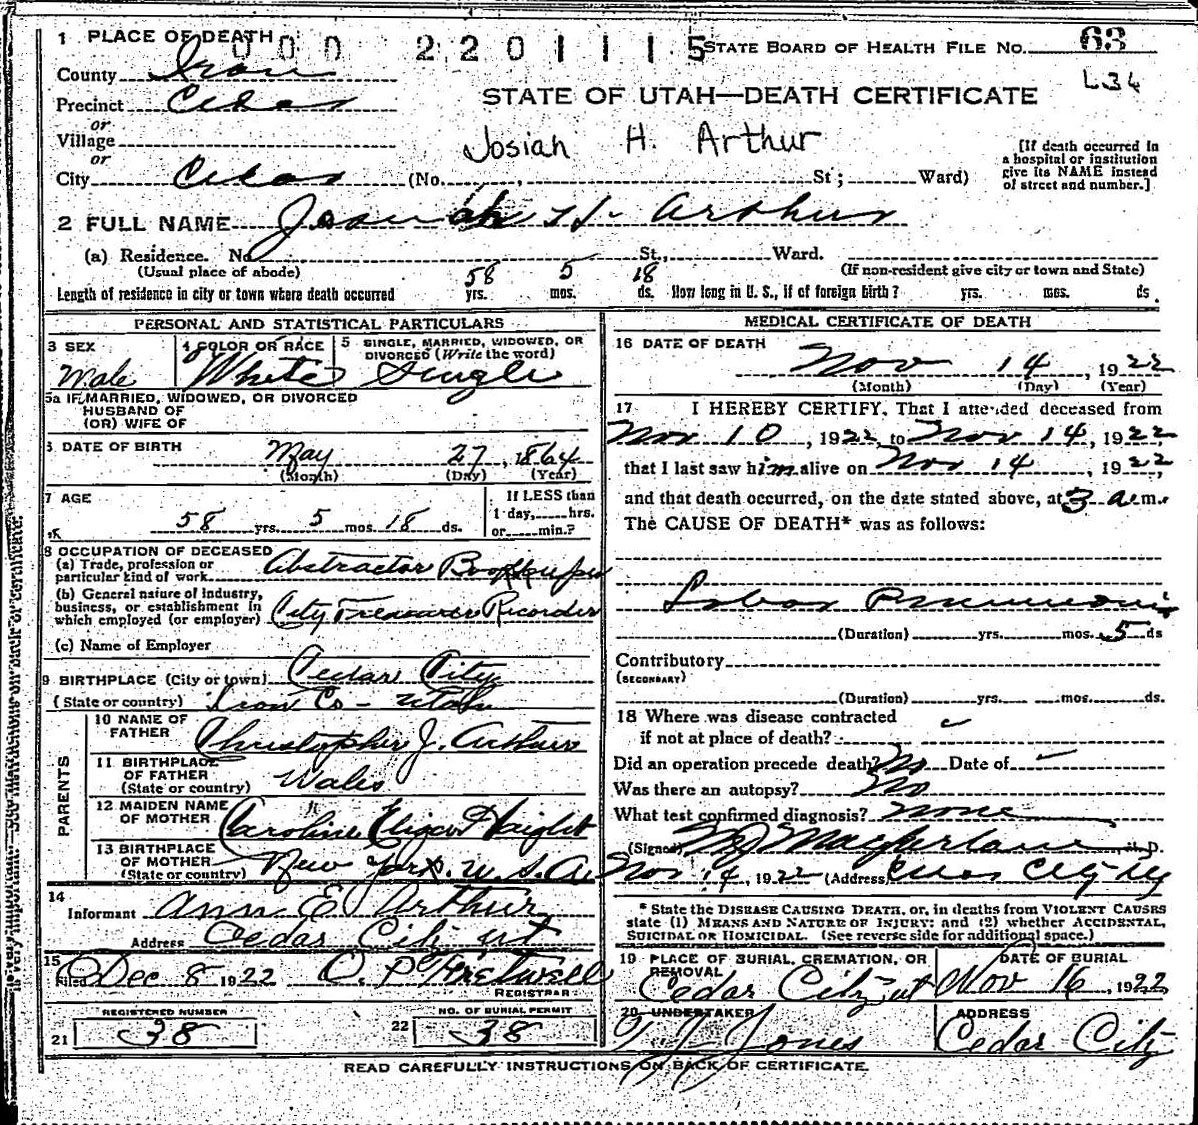 1 PLACE OF DEATH
000 2201115
STATE BOARD OF HEALTH FILE NO. 63
L34
County Iron
Precinct Cedar
or
Village
or
City Cedar
STATE OF UTAH—DEATH CERTIFICATE
Josiah H. Arthur
(No. St; Ward)
[If death occurred in
a hospital or institution
give its NAME instead
of street and number.]
2 FULL NAME Josiah H. Arthur
(a) Residence. No St., Ward.
(Usual place of abode) (If non-resident give city or town and State)
Length of residence in city or town where death occurred 58 yrs. 5 mos. 18 ds. How long in U. S., if of foreign birth? yrs. mos. ds.
PERSONAL AND STATISTICAL PARTICULARS
3 SEX
Male
4 COLOR OR RACE
White
5 SINGLE, MARRIED, WIDOWED, OR
DIVORCED (Write the word)
Single
5a IF MARRIED, WIDOWED, OR DIVORCED
HUSBAND OF
(OR) WIFE OF
6 DATE OF BIRTH May 27, 1864
(Month) (Day) (Year)
7 AGE
58 yrs. 5 mos. 18 ds.
If LESS than
1 day, hrs.
or min.?
8 OCCUPATION OF DECEASED
(a) Trade, profession or
particular kind of work Abstractor Bookkeeper
(b) General nature of industry,
business, or establishment in
which employed (or employer) City Treasurer Recorder
(c) Name of Employer
9 BIRTHPLACE (City or town) Cedar City
(State or country) Iron Co - Utah
PARENTS
10 NAME OF
FATHER Christopher J. Arthur
11 BIRTHPLACE
OF FATHER
(State or country) Wales
12 MAIDEN NAME
OF MOTHER Caroline Eliza Haight
13 BIRTHPLACE
OF MOTHER
(State or country) New York. U.S.A.
14
Informant Ann E Arthur
Address Cedar City ut
15
Filed Dec 8 1922 O. P. Fretwell
REGISTRAR
REGISTERED NUMBER
21 38
NO. OF BURIAL PERMIT
22 38
MEDICAL CERTIFICATE OF DEATH
16 DATE OF DEATH
Nov 14, 1922
(Month) (Day) (Year)
17 I HEREBY CERTIFY, That I attended deceased from
Nov 10, 1922, to Nov 14, 1922,
that I last saw him alive on Nov 14, 1922,
and that death occurred, on the date stated above, at 3 a.m.
The CAUSE OF DEATH* was as follows:
Lobar Pneumonia
(Duration) yrs. mos. 5 ds
Contributory
(SECONDARY)
(Duration) yrs. mos. ds.
18 Where was disease contracted
if not at place of death?
Did an operation precede death? No Date of
Was there an autopsy? No
What test confirmed diagnosis? None
(Signed) M J Macfarlane, M.D.
Nov 14, 1922 (Address) Cedar City
* State the DISEASE CAUSING DEATH, or, in deaths from VIOLENT CAUSES
state (1) MEANS AND NATURE OF INJURY; and (2) whether ACCIDENTAL,
SUICIDAL OR HOMICIDAL. (See reverse side for additional space.)
19 PLACE OF BURIAL, CREMATION, OR
REMOVAL
Cedar City, ut
DATE OF BURIAL
Nov 16, 1922
20 UNDERTAKER
T J Jones
ADDRESS
Cedar City
READ CAREFULLY INSTRUCTIONS ON BACK OF CERTIFICATE.